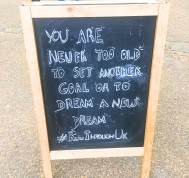 YOU ARE
NEVER TOO OLD
TO SET ANOTHER
GOAL OR TO
DREAM A NEW
DREAM